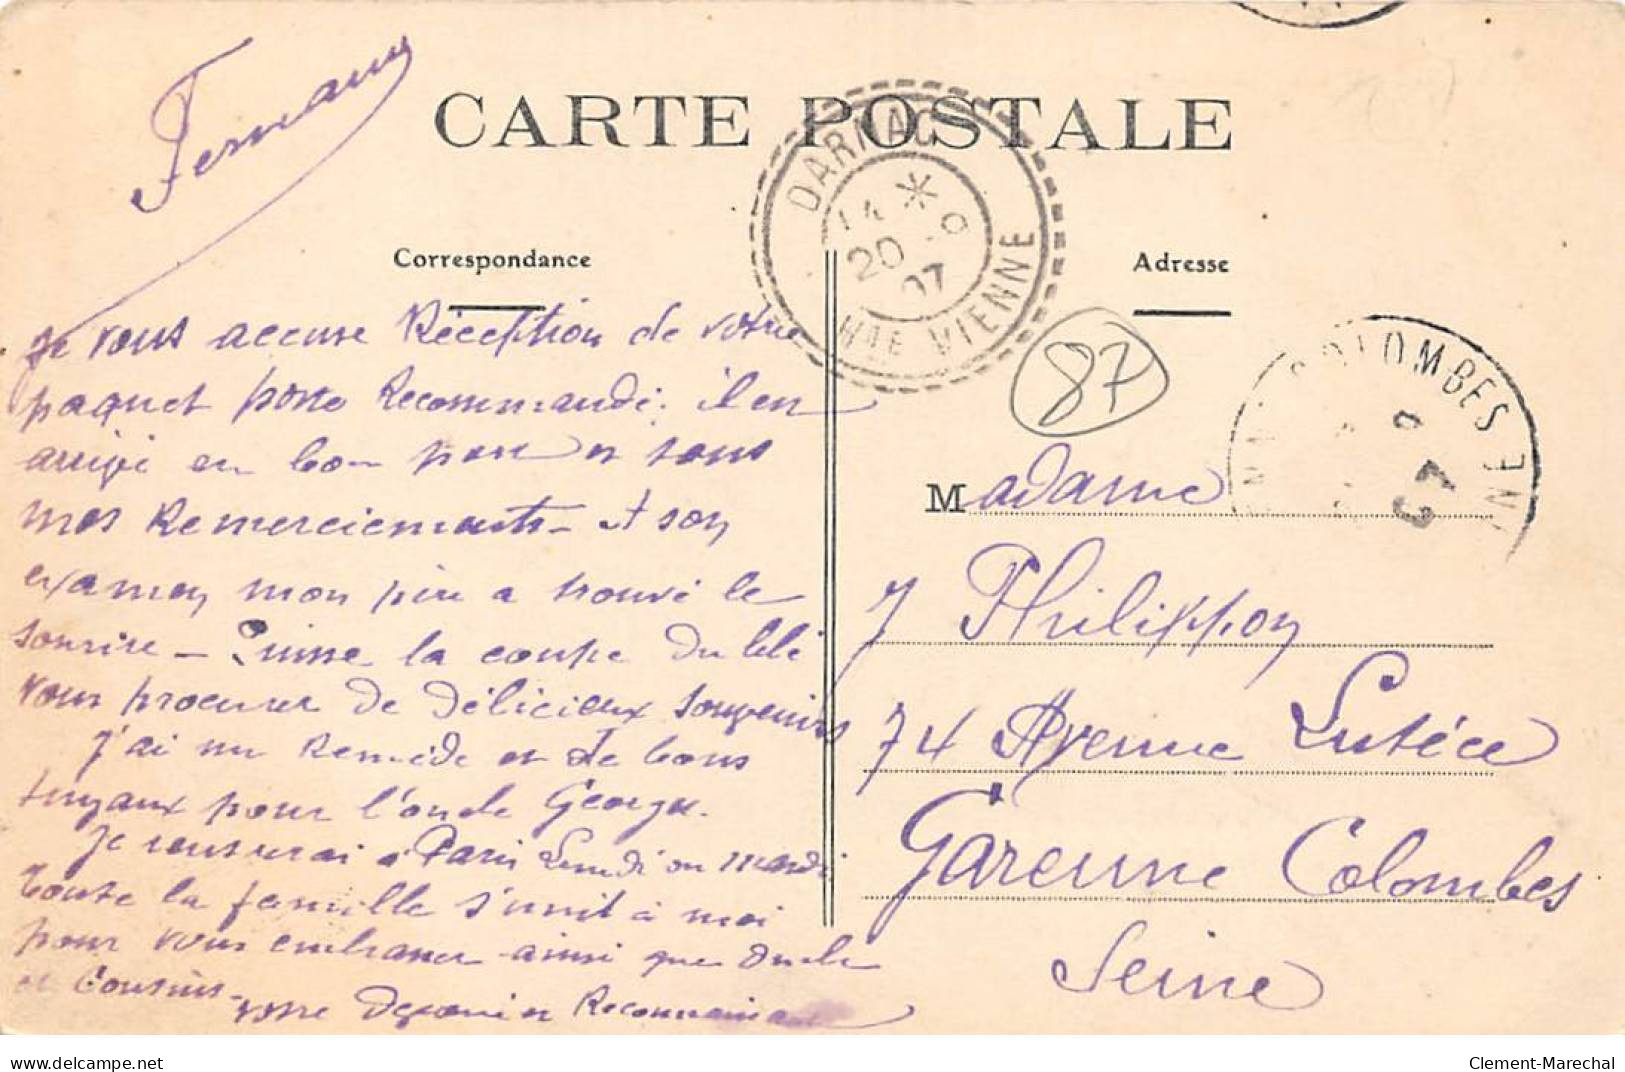 CARTE POSTALE
DARNAC
14 *
20 -9
07
HTE VIENNE
Correspondance
Adresse
Je vous accuse Réception de votre
paquet poste Recommandé. il en
arrivé en bon port et tous
mes Remerciements - A son
examen mon père a trouvé le
sourire - Puisse la coupe du blé
vous procurer de délicieux souvenirs
J'ai un Remède et de bons
tuyaux pour l'oncle George.
Je vous verrai à Paris Lundi ou mardi
Toute la famille s'unit à moi
pour vous embrasser ainsi que Oncle
et Cousins -
votre dévoué et Reconnaissant
Fernand
87
COLOMBES
Madame
Philippon
74 Avenue Lutéce
Garenne Colombes
Seine
delcampe.net
Clement-Marechal